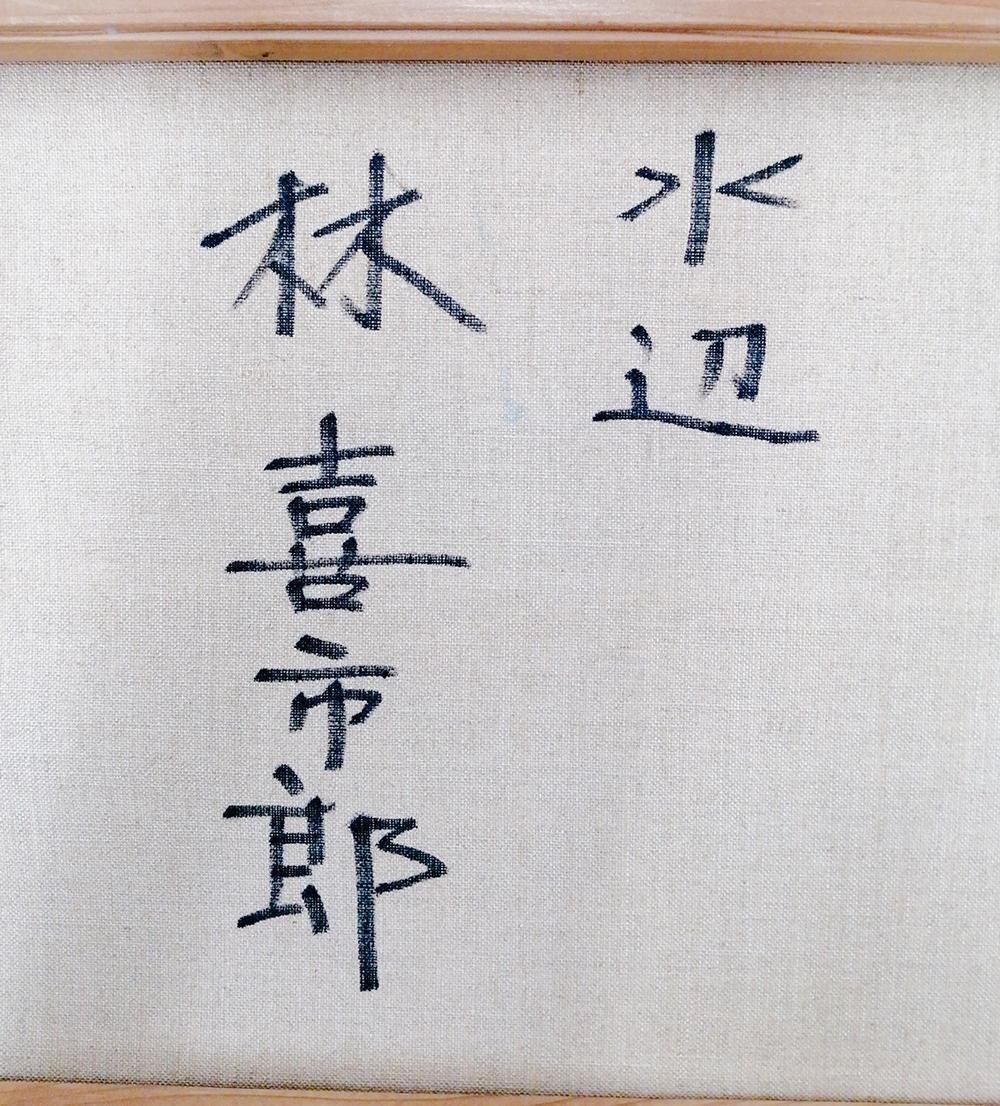 水辺
林喜市郎